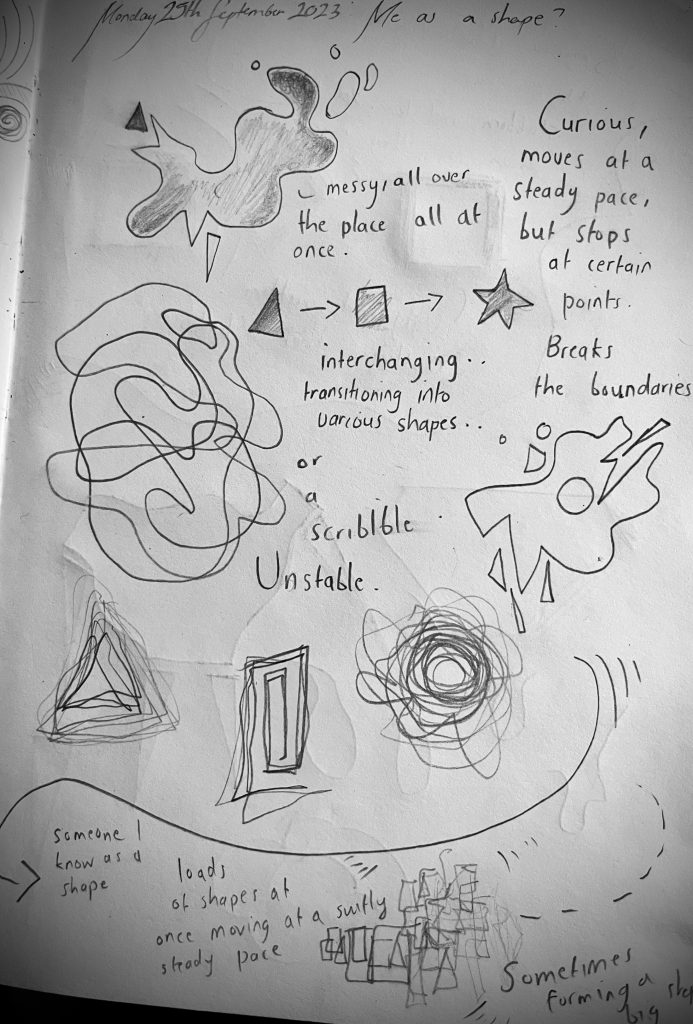 Monday 25th September 2023. Me as a shape?
messy, all over
the place all at
once.
Curious,
moves at a
steady pace,
but stops
at certain
points.
Breaks
the boundaries
interchanging..
transitioning into
various shapes..
or
a
scriblble
Unstable.
someone I
know as a
shape
loads
of shapes at
once moving at a swiftly
steady pace
Sometimes
forming a
big